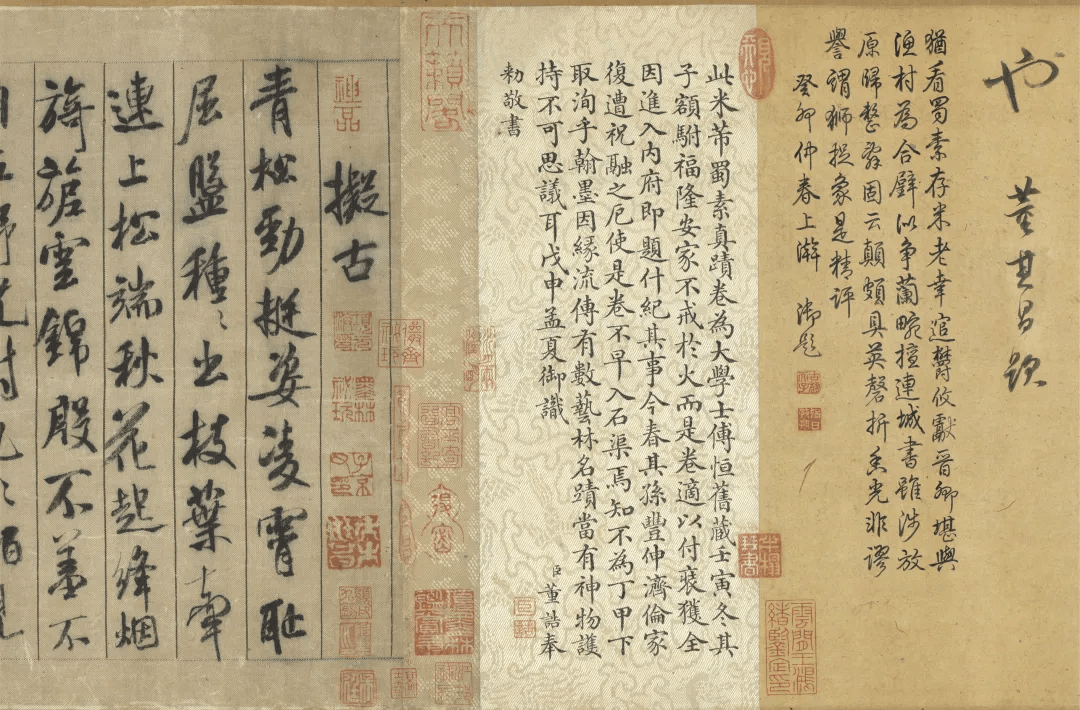 也
董其昌跋
猶看蜀素存米老幸逭欝攸獻晉卿堪與
漁村為合璧以爭蘭畹擅連城書雖涉放
原歸整劵固云顛頗具英磬折香光非謬
譽謂獅捉象是精評
癸卯仲春上澣 御題
此米芾蜀素真蹟卷為大學士傅恒舊藏壬寅冬其
子額駙福隆安家不戒於火而是卷適以付裝獲全
因進入内府即題什紀其事今春其孫豐伸濟倫家
復遭祝融之厄使是卷不早入石渠焉知不為丁甲下
取洵乎翰墨因緣流傳有數藝林名蹟當有神物護
持不可思議耳戊申孟夏御識
臣董誥奉
勅敬書
擬古
青松勁挺姿凌霄恥
屈盤種種出枝葉牽
連上松端秋花起絳烟
旖旎雲錦殷不羞不